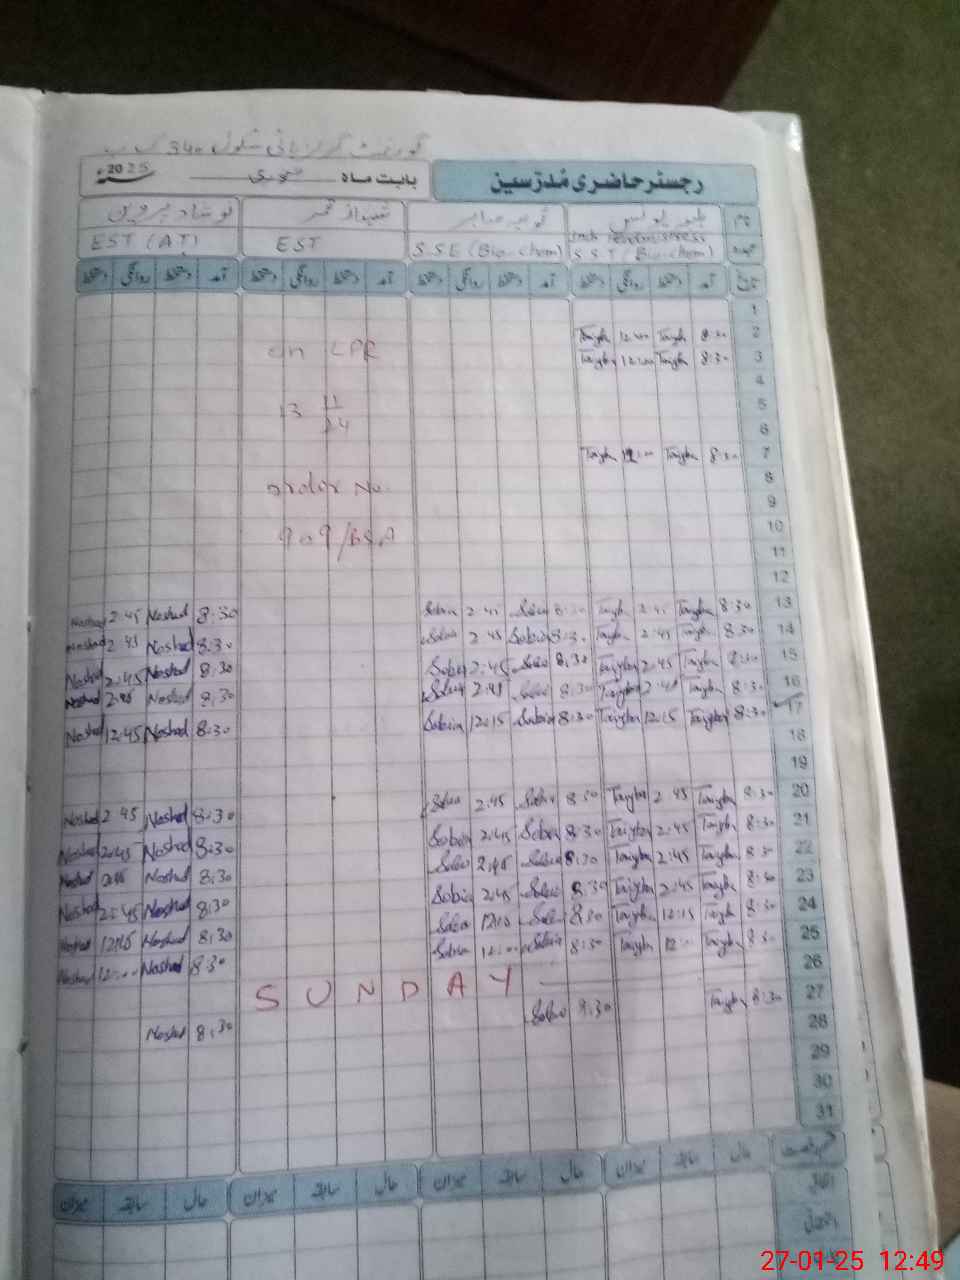 گورنمنٹ گرلز ہائی سکول 34
رجسٹر حاضری مُدرّسین بابت ماہ جنوری 2025
نام طیبہ یونس ثوبیہ صابر شہناز نوشاد پروین
عہدہ SST (Bio-chem) S.SE (Bio-chem) EST EST (AT)
تاریخ آمد دستخط روانگی دستخط آمد دستخط روانگی دستخط آمد دستخط روانگی دستخط آمد دستخط روانگی دستخط
1
2 8:30 Tayba 12:00 Tayba
3 8:30 Tayba 12:00 Tayba
on LPR
4
5
13 11/24
6
7 8:30 Tayba 12:00 Tayba
8
order No.
9
10
909/BSA
11
12
13 8:30 Tayba 2:45 Tayba 8:30 Sobia 2:45 Sobia 8:30 Noshad 2:45 Noshad
14 8:30 Tayba 2:45 Tayba 8:30 Sobia 2:45 Sobia 8:30 Noshad 2:45 Noshad
15 8:30 Tayba 2:45 Tayba 8:30 Sobia 2:45 Sobia 8:30 Noshad 2:45 Noshad
16 8:30 Tayba 2:45 Tayba 8:30 Sobia 2:45 Sobia 8:30 Noshad 2:45 Noshad
17 8:30 Tayba 12:15 Tayba 8:30 Sobia 12:15 Sobia 8:30 Noshad 12:45 Noshad
18
19
20 8:30 Tayba 2:45 Tayba 8:30 Sobia 2:45 Sobia 8:30 Noshad 2:45 Noshad
21 8:30 Tayba 2:45 Tayba 8:30 Sobia 2:45 Sobia 8:30 Noshad 2:45 Noshad
22 8:30 Tayba 2:45 Tayba 8:30 Sobia 2:45 Sobia 8:30 Noshad 2:45 Noshad
23 8:30 Tayba 2:45 Tayba 8:30 Sobia 2:45 Sobia 8:30 Noshad 2:45 Noshad
24 8:30 Tayba 12:15 Tayba 8:30 Sobia 12:15 Sobia 8:30 Noshad 12:15 Noshad
25 8:30 Tayba 12:00 Tayba 8:30 Sobia 12:00 Sobia 8:30 Noshad 12:00 Noshad
26 SUNDAY
27 8:30 Tayba 8:30 Sobia 8:30 Noshad
28
29
30
31
حال سابقہ میزان حال سابقہ میزان حال سابقہ میزان حال سابقہ میزان
اتفاقی
27-01-25 12:49